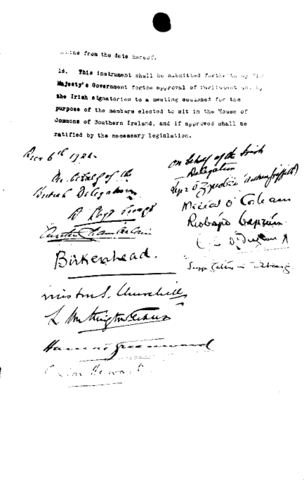 from the date hereof.
18. This instrument shall be submitted forthwith by His
Majesty's Government for the approval of Parliament and by
the Irish signatories to a meeting summoned for the
purpose of the members elected to sit in the House of
Commons of Southern Ireland, and if approved shall be
ratified by the necessary legislation.
Decr 6th 1921.
On behalf of the
British Delegation
D Lloyd George
Austen Chamberlain
Birkenhead.
Winston S. Churchill
L Worthington Evans
Hamar Greenwood
Gordon Hewart
On behalf of the Irish
Delegation
Art Ó Gríobhtha
Mícheál Ó Coileain
Riobárd Bartún